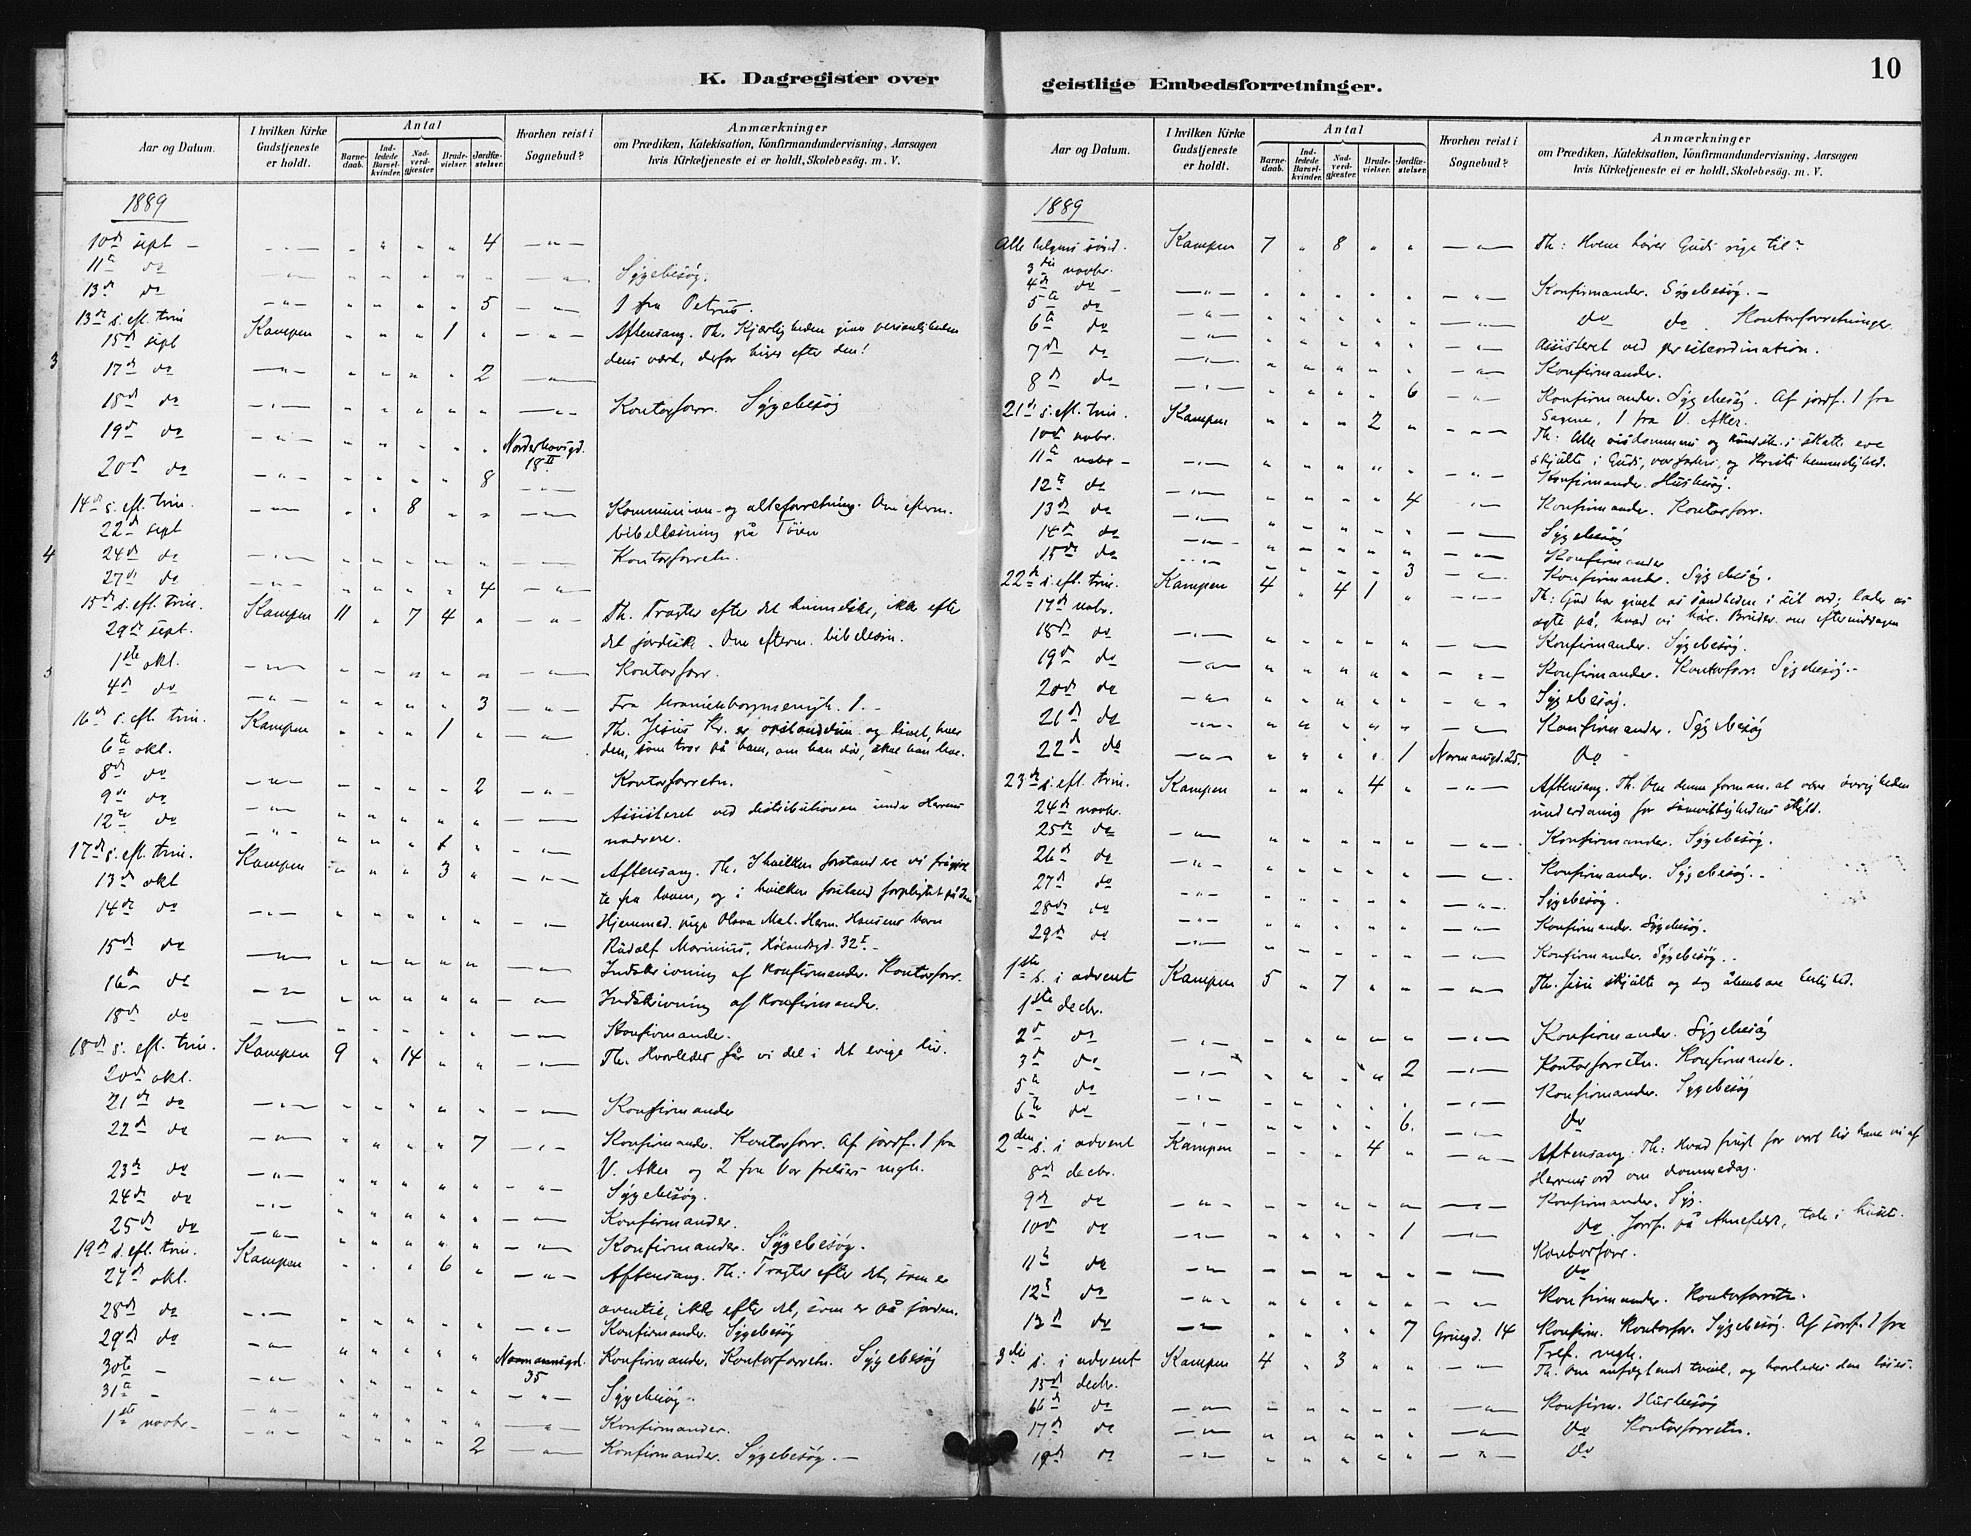 K. Dagregister over
Aar og Datum.
I hvilken Kirke Gudstjeneste er holdt.
Antal
Barnedaab.
Indledede Barselkvinder.
Nadverdgjæster.
Brudevielser.
Jordfæstelser.
Hvorhen reist i Sognebud?
Anmærkninger
om Prædiken, Katekisation, Konfirmandundervisning, Aarsagen
hvis Kirketjeneste ei er holdt, Skolebesög. m. V.
1889
10de sept – 4
11te do Sÿgebesøg.
13de do 5 1 fra Petrus.
13de s. eft. trin
15de sept Kampen 1 Aftensang. Th. Kjærligheden giver
dens værd, derfor higer efter den!
17de do 2
18de do Kontorforr. Sÿgebesøg
19de do
20de do 18 II 8
14de s. eft. trin. 8 Kommunion- og alterforretning. Om efterm.
22de sept bibellæsning på Töien
24de do Kontorforretn.
27de do 4
15de s. eft. trin. Kampen 11 7 4 Th. Tragter efter det himmelske, ikke efter
29de sept. det jordiske. Om efterm. bibellæsn.
1ste okt. Kontorforr.
4de do 3 Fra Uranienborgmenigh. 1.
16de s. eft. trin. Kampen 1 Th. Jesus Kr. er opstandelsen og livet, hver
6te okt. den, som tror på ham, om han dør, skal han leve.
8de do 2 Kontorforretn.
9de do Assisteret ved distributionen under Herrens
12te do nadvere.
17de s. eft. trin. Kampen 3 Aftensang. Th. I hvilken forstand ere vi frigjor
13de okt te fra loven, og i hvilken forstand forpligtet på den
14de do Hjemmed. pige Olava Mat. Herm. Hansens barn
Rudolf Marinius,
15de do Indskrivning af konfirmander. Kontorforr.
16de do Indskrivning af konfirmander.
18de do Konfirmander.
18de s. eft. trin. Kampen 9 14 Th. Hvorledes får vi del i det evige liv.
20de okt.
21de do Konfirmander
22de do 7 Konfirmander. Kontorforr. Af jordf. 1 fra
V. Aker og 2 fra Vor frelsers mgh.
23de do Sÿgebesøg.
24de do Konfirmander.
25de do Konfirmander. Sÿgebesøg.
19de s. eft. trin. Kampen 6 Aftensang. Th: Tragter efter det, som er
27de okt. oventil, ikke efter det, som er på jorden.
28de do Konfirmander. Sÿgebesøg
29de do Normannsgd. 35 Konfirmander. Kontorforretn. Sÿgebesøg
30te – Sÿgebesøg.
31te – Konfirmander.
1ste novbr – 2 Konfirmander. Sÿgebesøg. –
geistlige Embedsforretninger.
10
Aar og Datum.
I hvilken Kirke Gudstjeneste er holdt.
Antal
Barnedaab.
Indledede Barselkvinder.
Nadverdgjæster.
Brudevielser.
Jordfæstelser.
Hvorhen reist i Sognebud?
Anmærkninger
om Prædiken, Katekisation, Konfirmandundervisning, Aarsagen
hvis Kirketjeneste ei er holdt, Skolebesög. m. V.
1889
Alle helgens sönd. Kampen 7 8 Th: Hvem hører Guds rige til?
3die novbr.
4de do – Konfirmander. Sÿgebesøg. –
5te do do do. Kontorforretninger
6te do Assisteret ved
7de do Konfirmander.
8de do 6 Konfirmander. Sÿgebesøg. Af jordf. 1 fra
Sagene, 1 fra V. Aker.
21de s. eft. trin. Kampen 2 Th: Alle visdommens og kundsk.s skatte ere
10de novbr. skjulte i Guds, vor faders, og Kristi hemmelighed.
11te novbr – Konfirmander. Husbesøg.
12te do 4 Konfirmander. Kontorforr.
13de do Sÿgebesøg
14de do Konfirmander
15de do 3 Konfirmander. Sÿgebesøg.
22de s. eft. trin. Kampen 4 4 1 Th: Gud har givet os sandheden i sit ord; lader os
17de novbr. agte på, hvad vi høre. om eftermiddagen
18de do Konfirmander. Sÿgebesøg.
19de do Konfirmander. Kontorforr. Sÿgebesøg. –
20de do Sÿgebesøg.
21de do Konfirmander. Sÿgebesøg
22de do 1 Normansgd. 25. Do
23de s. eft. trin. Kampen 4 Aftensang. Th. Om at være øvrigheden
24de novbr. underdanig for samvittighedens skyld.
25de do Konfirmander. Sÿgebesøg.
26de do Konfirmander. Sÿgebesøg. –
27de do Sÿgebesøg.
28de do Konfirmander. Sÿgebesøg.
29de do Konfirmander. Sÿgebesøg.
1ste s. i advent Kampen 5 7 Th. Jesu skjulte og dog åbenbare herlighed.
1ste decbr.
2de do Konfirmander. Sÿgebesøg
3de do 2 Kontorforretn. Konfirmander.
5te do Konfirmander. Sÿgebesøg
6te do 6. Do
2den s. i advent Kampen 4 Aftensang. Th: Hvad frugt for vort liv have vi af
8de decbr. Herrens ord om dommedag.
9de do Konfirmander. Sÿg.
10de do 1 do. Jordf. på tale i huset.
Kontorforr.
11te do Do
12te do Konfirmander. Kontorforretn.
13de do 7 Grüngd. 14 Konfirm. Kontorforr. Sÿgebesøg. Af jordf. 1 fra
Tref. mgh.
3die s. i advent Kampen 4 3 Th. Om anfægtende tvivl, og hvorledes den løses.
15de decbr.
16de do Konfirm. Husbesøg
17de do Do Kontorforretn.
19de do Do
3
4
5